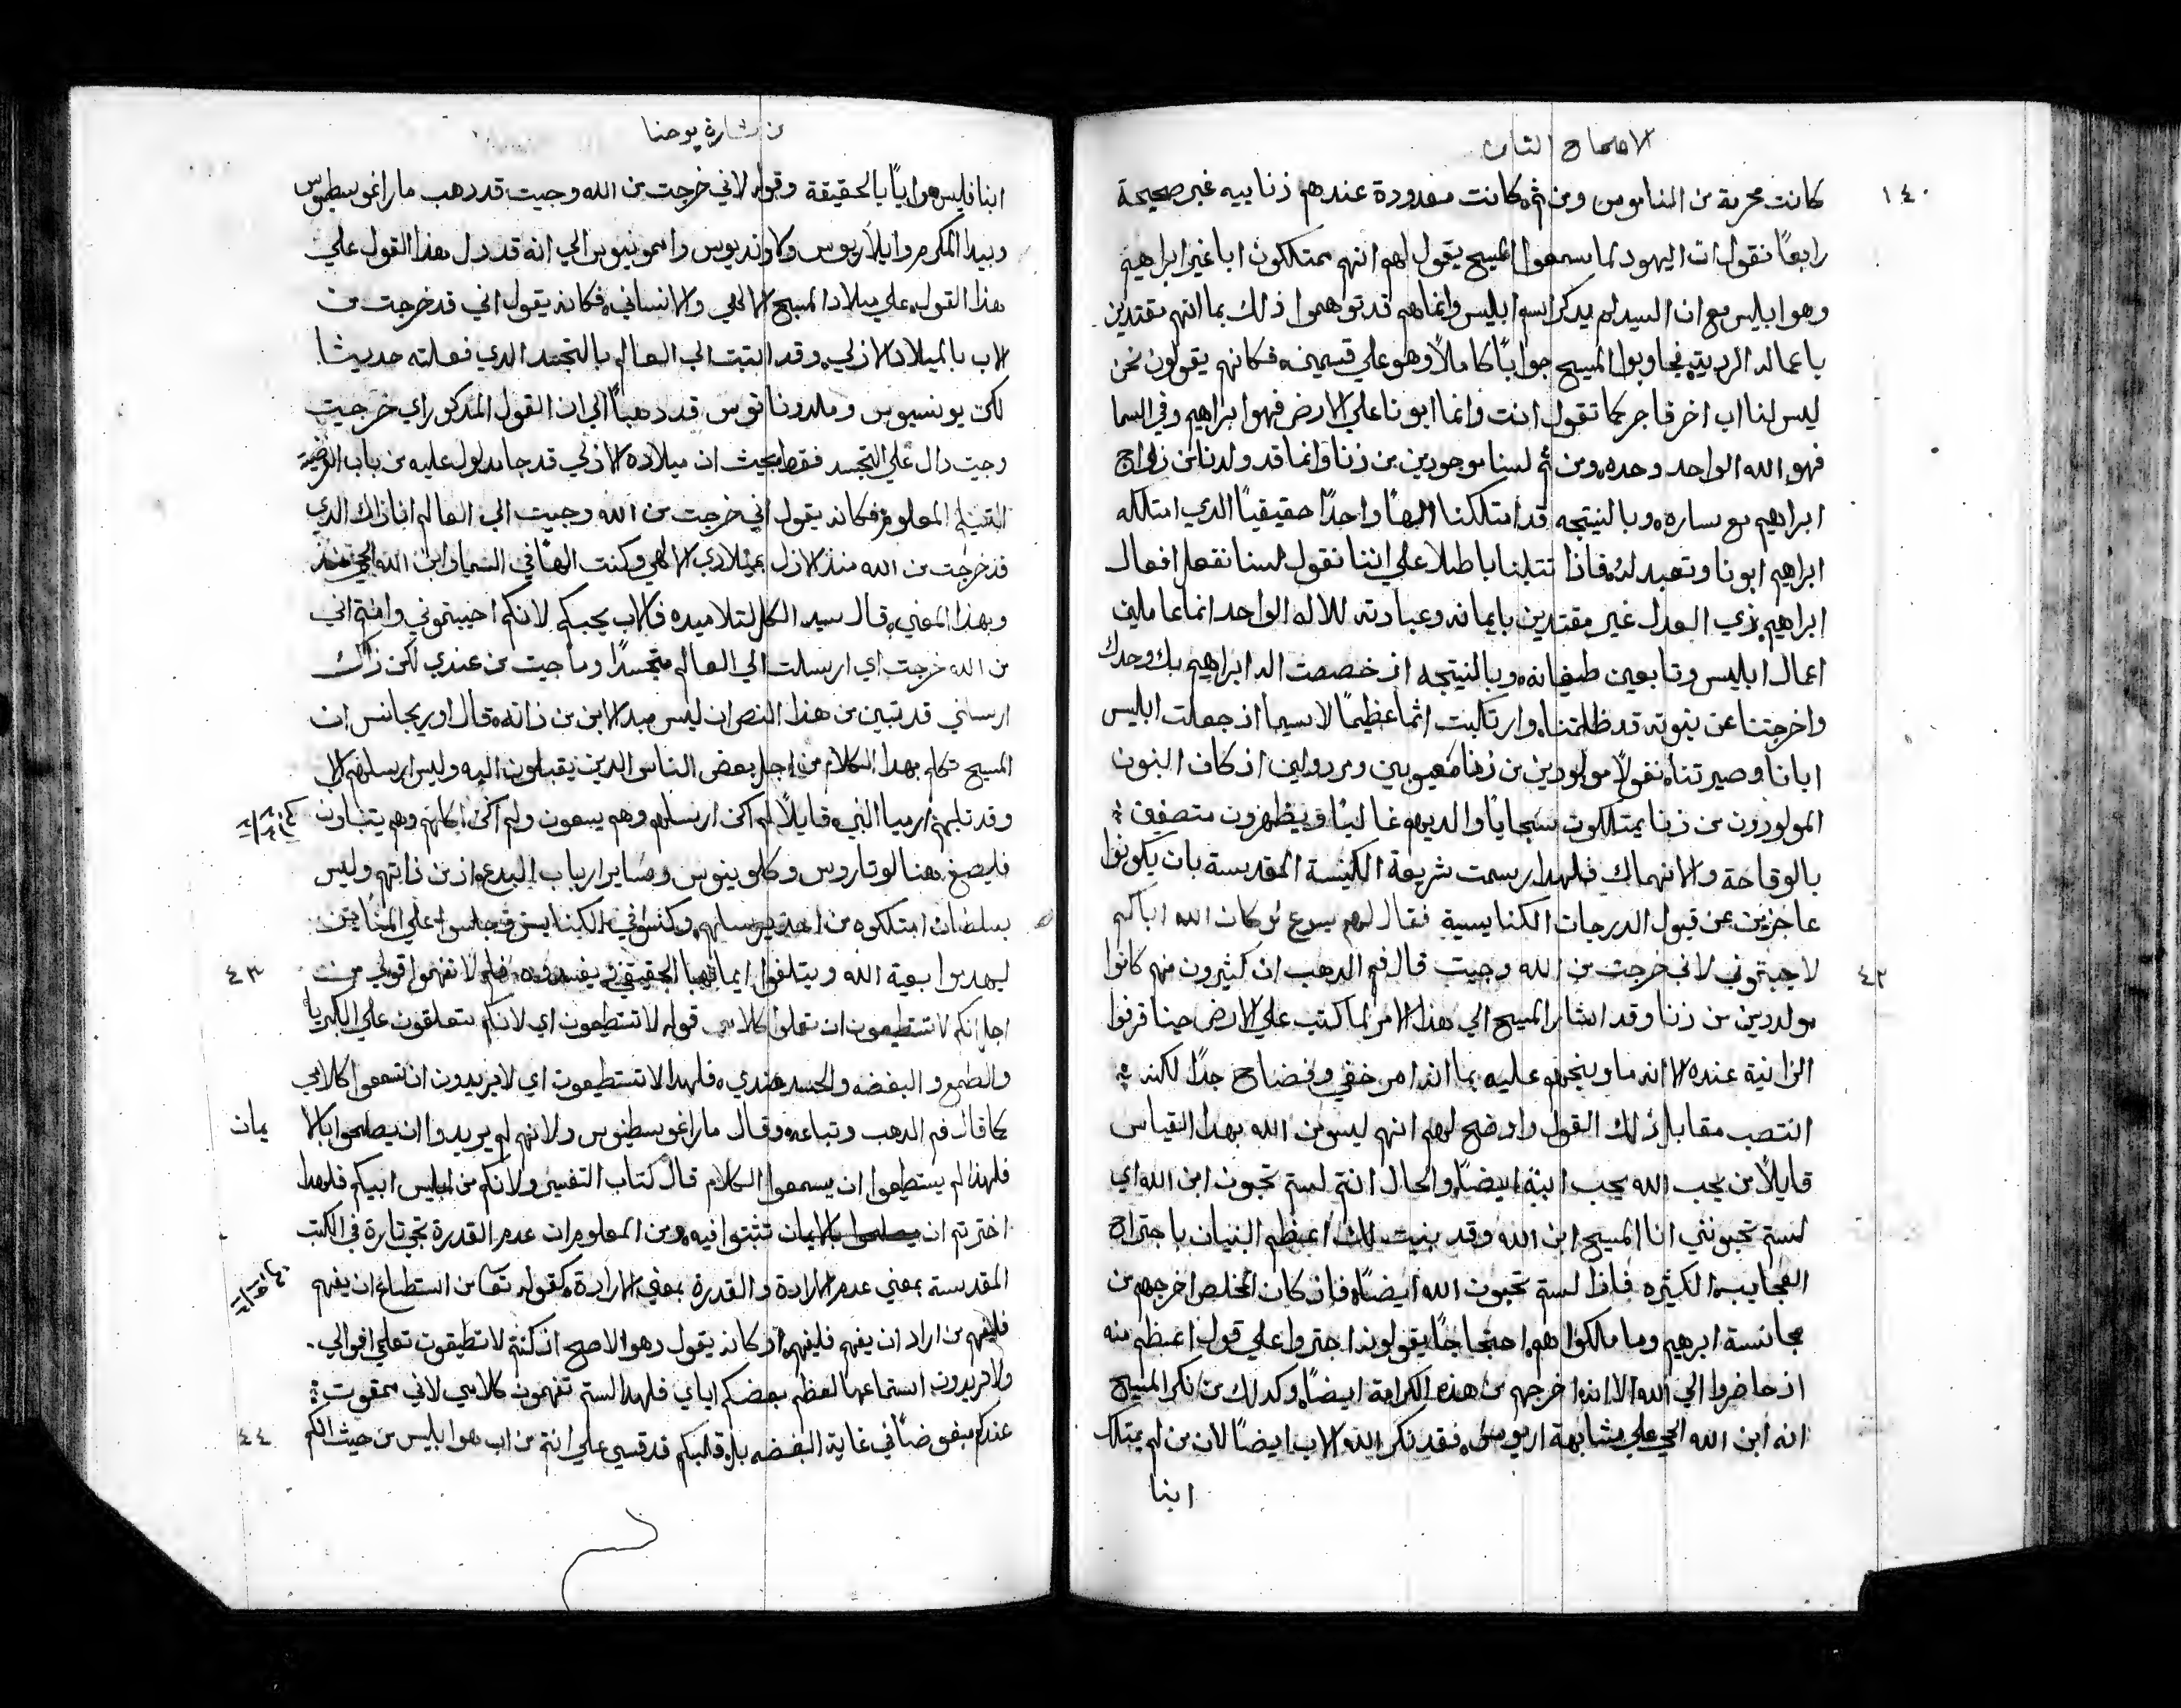 الاصحاح الثامن
١٤٠
كانت محرمة من الناموس ومن ثم كانت معدودة عندهم زنا بيه غير صحيحة
رابعاً نقول ان اليهود لما سمعوا المسيح يقول لهم انهم ممتلكون ابا غير ابراهيم
وهو ابليس مع ان السيد لم يدكر اسم ابليس وانما هم قد توهموا ذلك بما انهم مقتدين
باعماله الرديه فجاوبوا المسيح جواباً كاملاً وهو علي قسمين فكانهم يقولون نحن
ليس لنا اب اخر فاجر كما تقول انت وانما ابونا علي الارض فهو ابراهيم وفي السما
فهو الله الواحد وحده ومن ثم لسنا موجودين من زنا وانما قد ولدنا من زواج
ابراهيم مع ساره وبالنتيجه قد امتلكنا الهاً واحداً حقيقياً الدي امتلكه
ابراهيم ابونا وتعبد له فاذا تتلبنا باطلا علي اننا نقول لسنا نفعل افعال
ابراهيم دي العدل غير مقتدين بايمانه وعبادته للاله الواحد انما عاملين
اعمال ابليس وتابعين طغيانه وبالنتيجه اذ خصصت اله ابراهيم بك وحدك
واخرجتنا عن بنوته قد ظلمتنا وارتكبت اثماً عظيماً لاسيما اذ جعلت ابليس
ابانا وصيرتنا نغولاً مولودين من زنا معيوبين ومردولين اذ كان البنون
المولودون من زنا يمتلكون سجايا والديهم غالباً ويظهرون متصفين
بالوقاحة والانهماك فلهدا رسمت شريعة الكنيسة المقدسة بان يكونوا
عاجزين عن قبول الدرجات الكنايسية فقال لهم يسوع لو كان الله اباكم
٤٢
لاحبتموني لاني خرجت من الله وجيت قال فم الدهب ان كثيرون منهم كانوا
مولودين من زنا وقد اشار المسيح الي هذا الامر لما كتب علي الارض حينا قرفوا
الزانية عنده الا انه ما وبخهم عليه بما انه امر خفي وفضاح جداً لكنه
انتصب مقابل ذلك القول واوضح لهم انهم ليسو من الله بهدا القياس
قايلاً من يحب الله يحب ابنه ايضاً والحال انتم لستم تحبون ابن الله اي
لستم تحبونني انا المسيح ابن الله وقد بنيت لك اعظم البنيان باجتراح
العجايب الكثيره فاذاً لستم تحبون الله ايضاً فاذ كان المخلص اخرجهم من
مجانسة ابرهيم وما مالكوا هم احتجاجاً يقولونه اجتروا علي قول اعظم منه
اذ حاضروا الي الله الا انه اخرجهم من هذه الكرامة ايضاً وكدلك من نكر المسيح
انه ابن الله الحي علي مشابهة اريوس فقد نكر الله الاب ايضاً لان من لم يمتلك
ابنا
من بشارة يوحنا
ابنا فليس هو اباً بالحقيقة وقوله لاني خرجت من الله وجيت قد دهب مار اغوسطينوس
وبيدا المكرم وايلاريوس ولاونديوس وامونيوس الي انه قد دل بهذا القول علي
هذا القول علي ميلاد المسيح الالهي والانساني فكانه يقول اني قد خرجت من
الاب بالميلاد الازلي وقد اتيت الي العالم بالتجسد الدي فعلته حديثا
لكن يونسيوس وملدوناتوس قد دهبا الي ان القول المدكور اي خرجت
وجيت دال علي التجسد فقط بحيث ان ميلاده الازلي قد جا مدلول عليه من باب
المعلوم فكانه يقول اني خرجت من الله وجيت الي العالم انا ذاك الدي
قد خرجت من الله منذ الازل بميلادي الالهي وكنت الهاً في السما وابن الله الحي
وبهذا المعني قال سيد الكل لتلاميده فالاب يحبكم لانكم احببتموني وامنتم اني
من الله خرجت اي ارسلت الي العالم متجسداً وما جيت من عندي لكن ذاك
ارسلني قد تبين من هذا النص ان ليس مبدا الابن من ذاته قال اوريجانس ان
المسيح تكلم بهدا الكلام من اجل بعض الناس الدين يقبلون اليه وليس ارسلهم الاب
وقد ثلبهم ارميا النبي قايلاً لم اكن ارسلهم وهم يسعون ولم اكن اكلمهم وهم يتنباون
فليصغ هنا لوتاروس وكلوينوس وساير ارباب البدع اذ من ذاتهم وليس
بسلطان امتلكوه من احد يرسلهم وكنسوا في الكنايس وجلسوا علي المناير
ليهدموا بيعة الله ويتلفوا ايمانها الحقيقي ويفسدوه فلم لا تفهموا قولي من
٤٣
اجل انكم لا تستطيعون ان تعلوا كلامي قوله لا تستطيعون اي لانكم متعلقون علي الكبريا
والطمع والبغضه والحسد ضدي فلهدا لا تستطيعون اي لا تريدون ان تسمعوا كلامي
كما قال فم الدهب وتباعه وقال مار اغوسطينوس ولانهم لم يريدوا ان يصلحوا بالا
يمان
فلهذا لم يستطيعوا ان يسمعوا الكلام قال كتاب التفسير ولانكم من ابليس ابيكم فلهدا
اخترتم ان يصلحوا بالايمان تثبتوا فيه ومن المعلوم ان عدم القدرة تجي تارة في الكتب
المقدسة بمعني عدم الارادة والقدرة بمعني الارادة كقوله تعا من استطاع ان يفهم
فليفهم من اراد ان يفهم فليفهم او كانه يقول وهو الاصح انكم لا تطيقون تعلمي اقوالي
ولا تريدون استماعها لعظم بغضكم اياي فلهدا لستم تفهمون كلامي لاني ممقوت
عندكم مبغوضاً في غاية البغضه بل قلبكم قد قسي علي انتم من اب هو ابليس من حيث انكم
٤٤